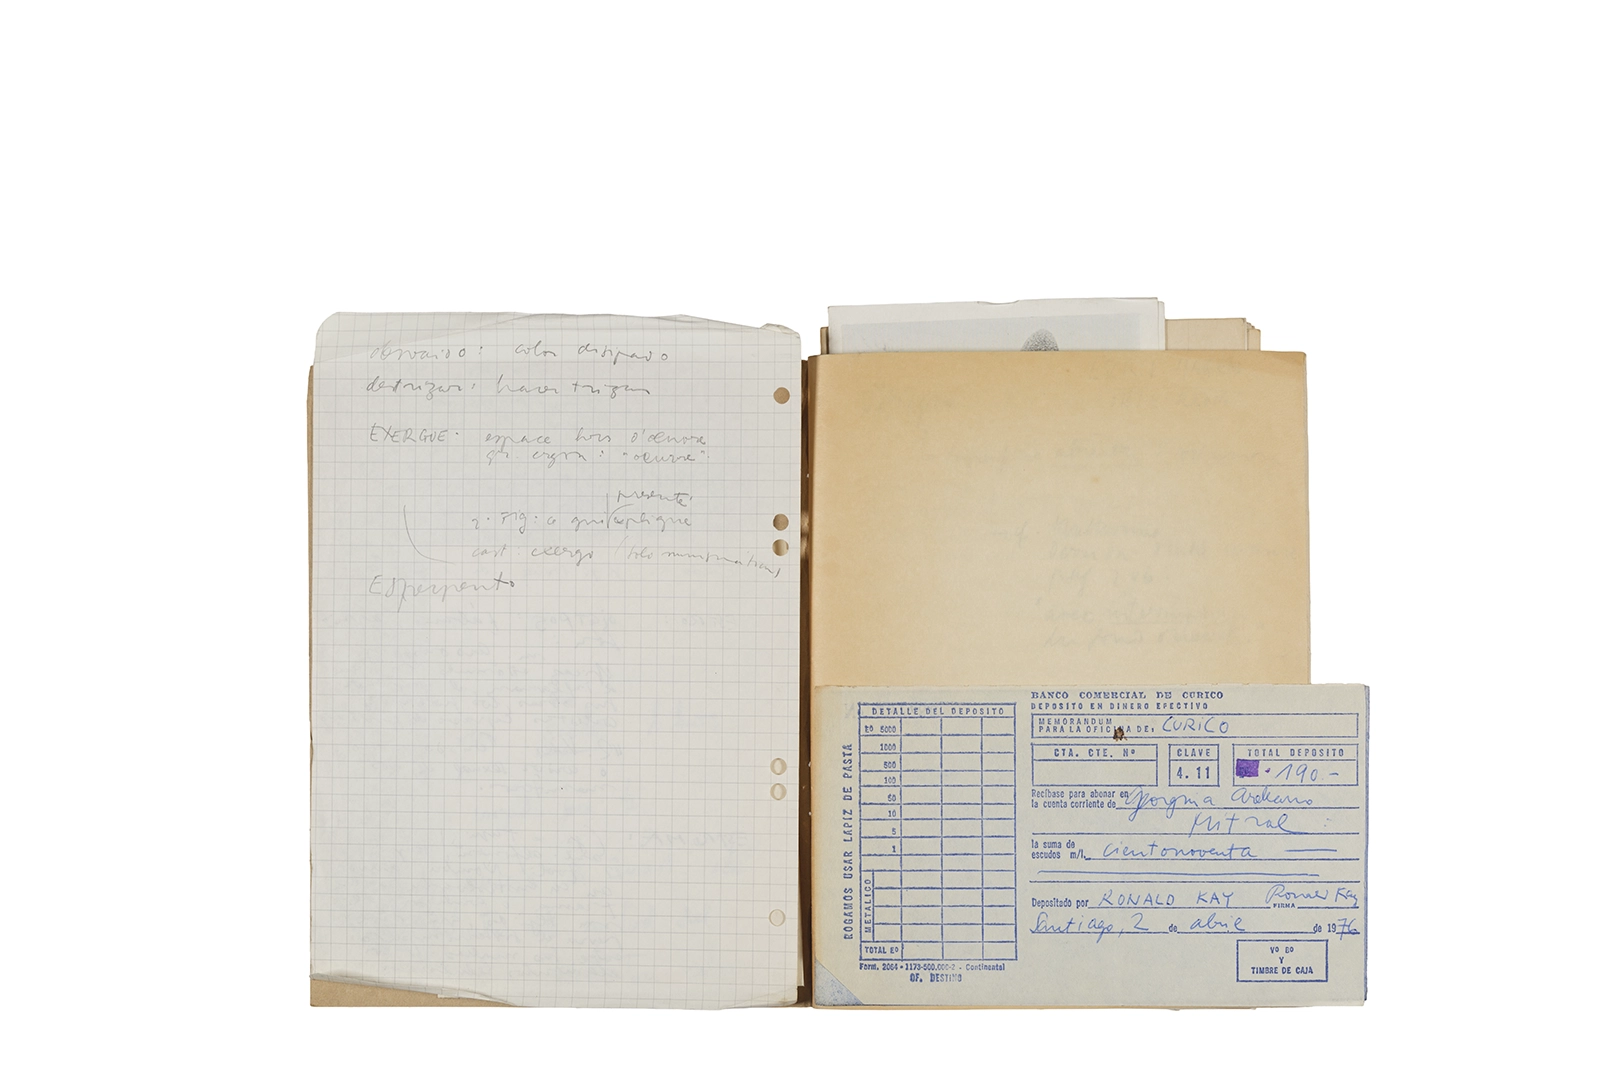 destrizar: hacer trizas
EXERGUE: espace hors d'œuvre
gr. ergon: "œuvre".
présente
2. Fig: ce qui explique
cast: exergo
Esperpento
BANCO COMERCIAL DE CURICO
DEPOSITO EN DINERO EFECTIVO
MEMORANDUM
PARA LA OFICINA DE: CURICO
CTA. CTE. Nº
CLAVE
4.11
TOTAL DEPOSITO
190.-
Recíbase para abonar en
la cuenta corriente de Georgina Arellano
Mitral
la suma de
escudos m/l. cientonoventa
Depositado por RONALD KAY Ronald Kay
FIRMA
Santiago, 2 de abril de 1976
Vº Bº
Y
TIMBRE DE CAJA
DETALLE DEL DEPOSITO
Eº 5000
1000
500
100
50
10
5
1
METALICO
TOTAL Eº
ROGAMOS USAR LAPIZ DE PASTA
Form. 2064 - 1173-500.000-2 - Continental
OF. DESTINO